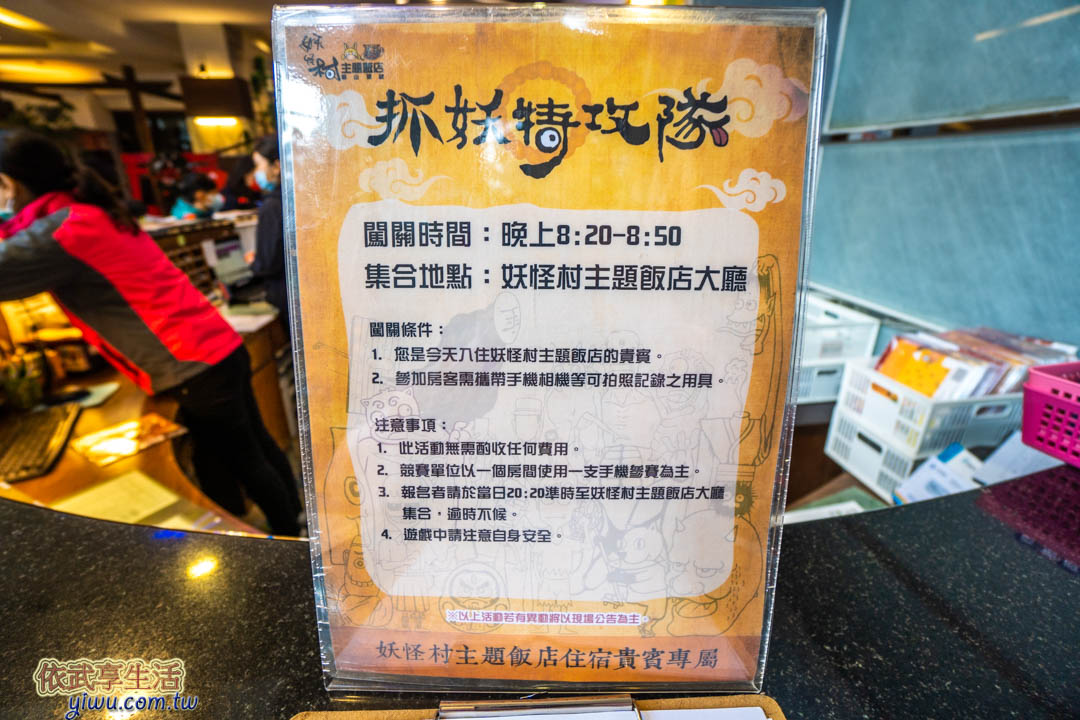 妖怪村
主題飯店
抓妖特攻隊
闖關時間：晚上8:20-8:50
集合地點：妖怪村主題飯店大廳
闖關條件：
1. 您是今天入住妖怪村主題飯店的貴賓。
2. 參加房客需攜帶手機相機等可拍照記錄之用具。
注意事項：
1. 此活動無需酌收任何費用。
2. 競賽單位以一個房間使用一支手機參賽為主。
3. 報名者請於當日20:20準時至妖怪村主題飯店大廳
集合，逾時不候。
4. 遊戲中請注意自身安全。
※以上活動若有異動將以現場公告為主。
妖怪村主題飯店住宿貴賓專屬
依武享生活
yiwu.com.tw